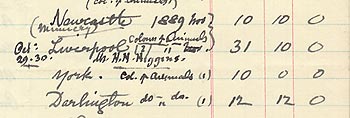 (Col. of Animals)
(Newcastle 1889 Nov) 10 10 0
(Mimicry)
Oct: Liverpool Colours of Animals (2) 31 10 0
29.30. Mr. H. H. Higgins.
York. Col. of Animals (1) 10 0 0
Darlington do - do. (1) 12 12 0